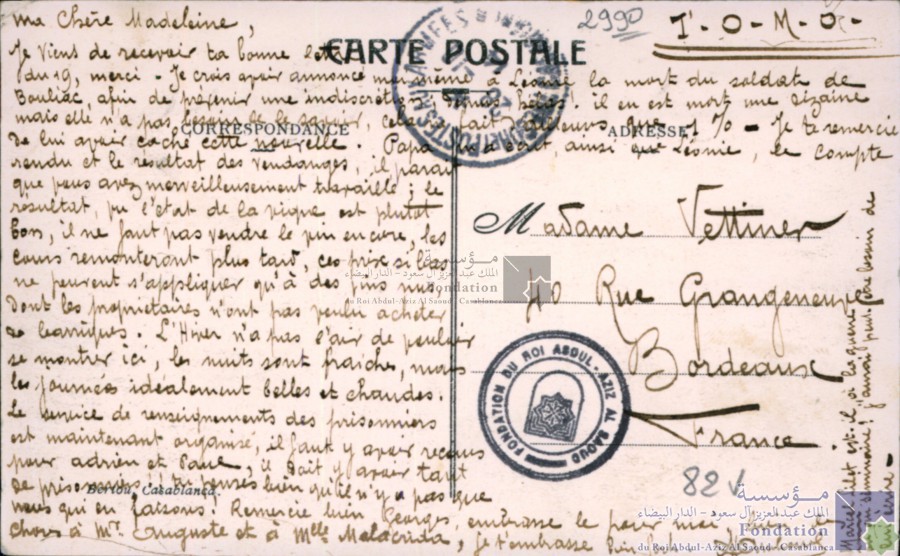 ma Chère Madeleine,
2990
T.O.M.O.
CARTE POSTALE
CORRESPONDANCE
ADRESSE
Je viens de recevoir ta bonne
du 19, merci - Je crois avoir annoncé à Léonie la mort du soldat de
Bouliac, afin de prévenir une indiscrétion, il en est mort une dizaine
mais elle n'a pas besoin de le savoir, cela fait d'ailleurs que 1% - Je te remercie
de lui avoir caché cette nouvelle. Papa m'a fait, ainsi que Léonie, le compte
rendu et le résultat des vendanges, il parait
que vous avez merveilleusement travaillé ; le
résultat, vu l'état de la vigne est plutôt
bon, il ne faut pas vendre le vin encore, les
cours remonteront plus tard, ces prix si bas
ne peuvent s'appliquer qu'à des vins
dont les propriétaires n'ont pas voulu acheter
de barriques. L'Hiver n'a pas l'air de vouloir
se montrer ici, les nuits sont fraiches, mais
les journées idéalement belles et chaudes.
Le service de renseignements des prisonniers
est maintenant organisé, il faut y avoir recours
pour adrien et Paul, il doit y avoir tant
de prisonniers, tu penses bien qu'il n'y a pas que
nous qui en faisons! Remercie bien Georges, embrasse le pour moi
choses à Mr Auguste et à Mlle Malacrida, je t'embrasse
Madame Vettiner
40 Rue Grangeneuve
Bordeaux
France
Bortou, Casablanca.
82 V
FONDATION DU ROI ABDUL-AZIZ AL SAOUD
مؤسسة
الملك عبد العزيز آل سعود - الدار البيضاء
Fondation
du Roi Abdul-Aziz Al Saoud - Casablanca
مؤسسة
الملك عبد العزيز آل سعود - الدار البيضاء
Fondation
du Roi Abdul-Aziz Al Saoud - Casablanca